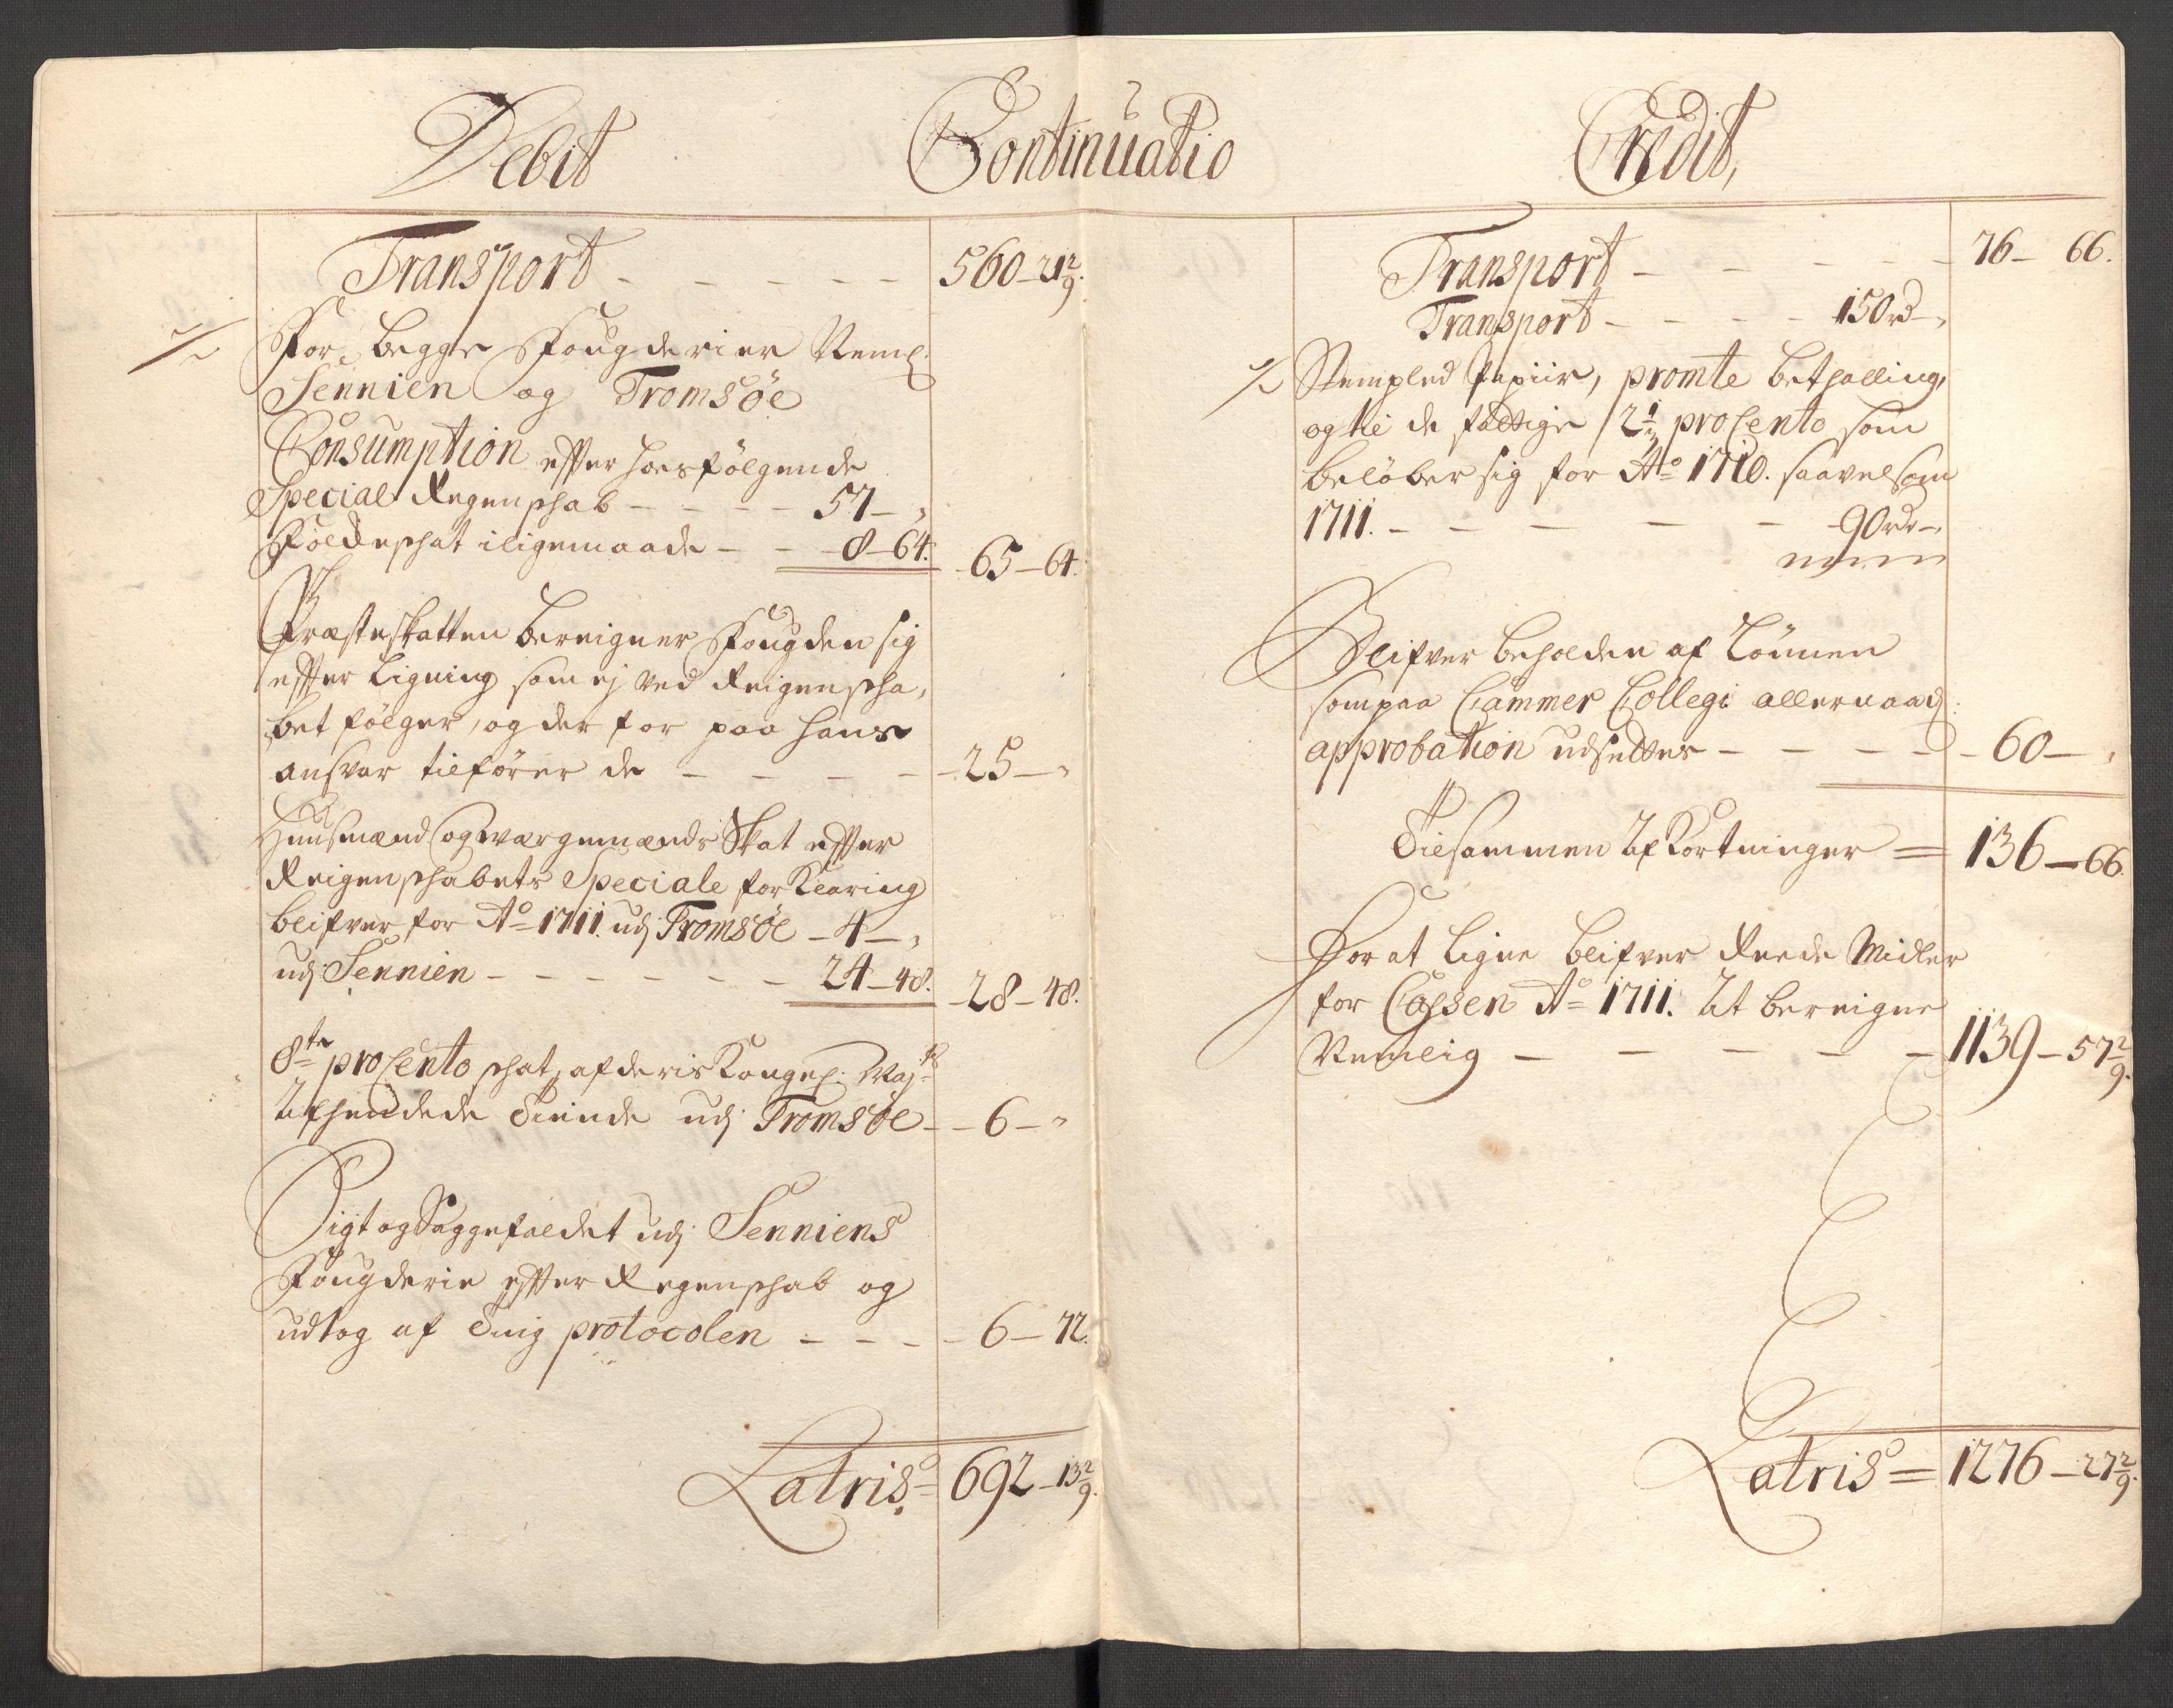 Debit
Continuatio
Credit,
Transport - - - - - 560-21 2/9.
For begge Fougderier Neml:
Sennien og Tromsöe
Consumption effter hoesfölgende
Special Regenschab - - - - 57-„
Folcheschat iligemaade - - - 8-64. 65-64.
Præsteskatten bereigner Fougden sig
effter Ligning som ej ved Reigenscha,
bet fölger, og der for paa hans
ansvar tilförer de - - - - - 25-„
Huusmænd og Wargemænds Skat effter
Reigenschabets Speciale forKlaring
blifver for Ao 1711. udj Tromsöe - 4-„
udj Sennien - - - - - - 24-48. 28-48.
8te proCento schat af deris Kongel: Maj:ts
Afhendede Tiende udj Tromsöe - - 6-„
Sigt og Saggefaldet udj Senniens
Fougderie effter Regenschab og
udtog af Ting protocolen - - - - 6-72.
Latris = 692-13 2/9.
Transport - - - - - 76- 66.
Transport - - - - 150rd-„
Stempled Papiir, promte bethalling,
og til de fattige / 2 1/2 proCento som
belöber sig for Ao 1710. saavelsom
1711. - - - - - 90rdr-„
Blifver beholden af Lönnen
som paa Cammer Collegi allernaad:
approbation udsettes - - - - - 60-„
Tilsammen Af Kortninger = 136-66.
For at ligne blifver Reede Midler
for Cassen Ao 1711. At bereigne
Nemlig - - - - - 1139-57 2/9.
Latris = 1276-27 2/9.